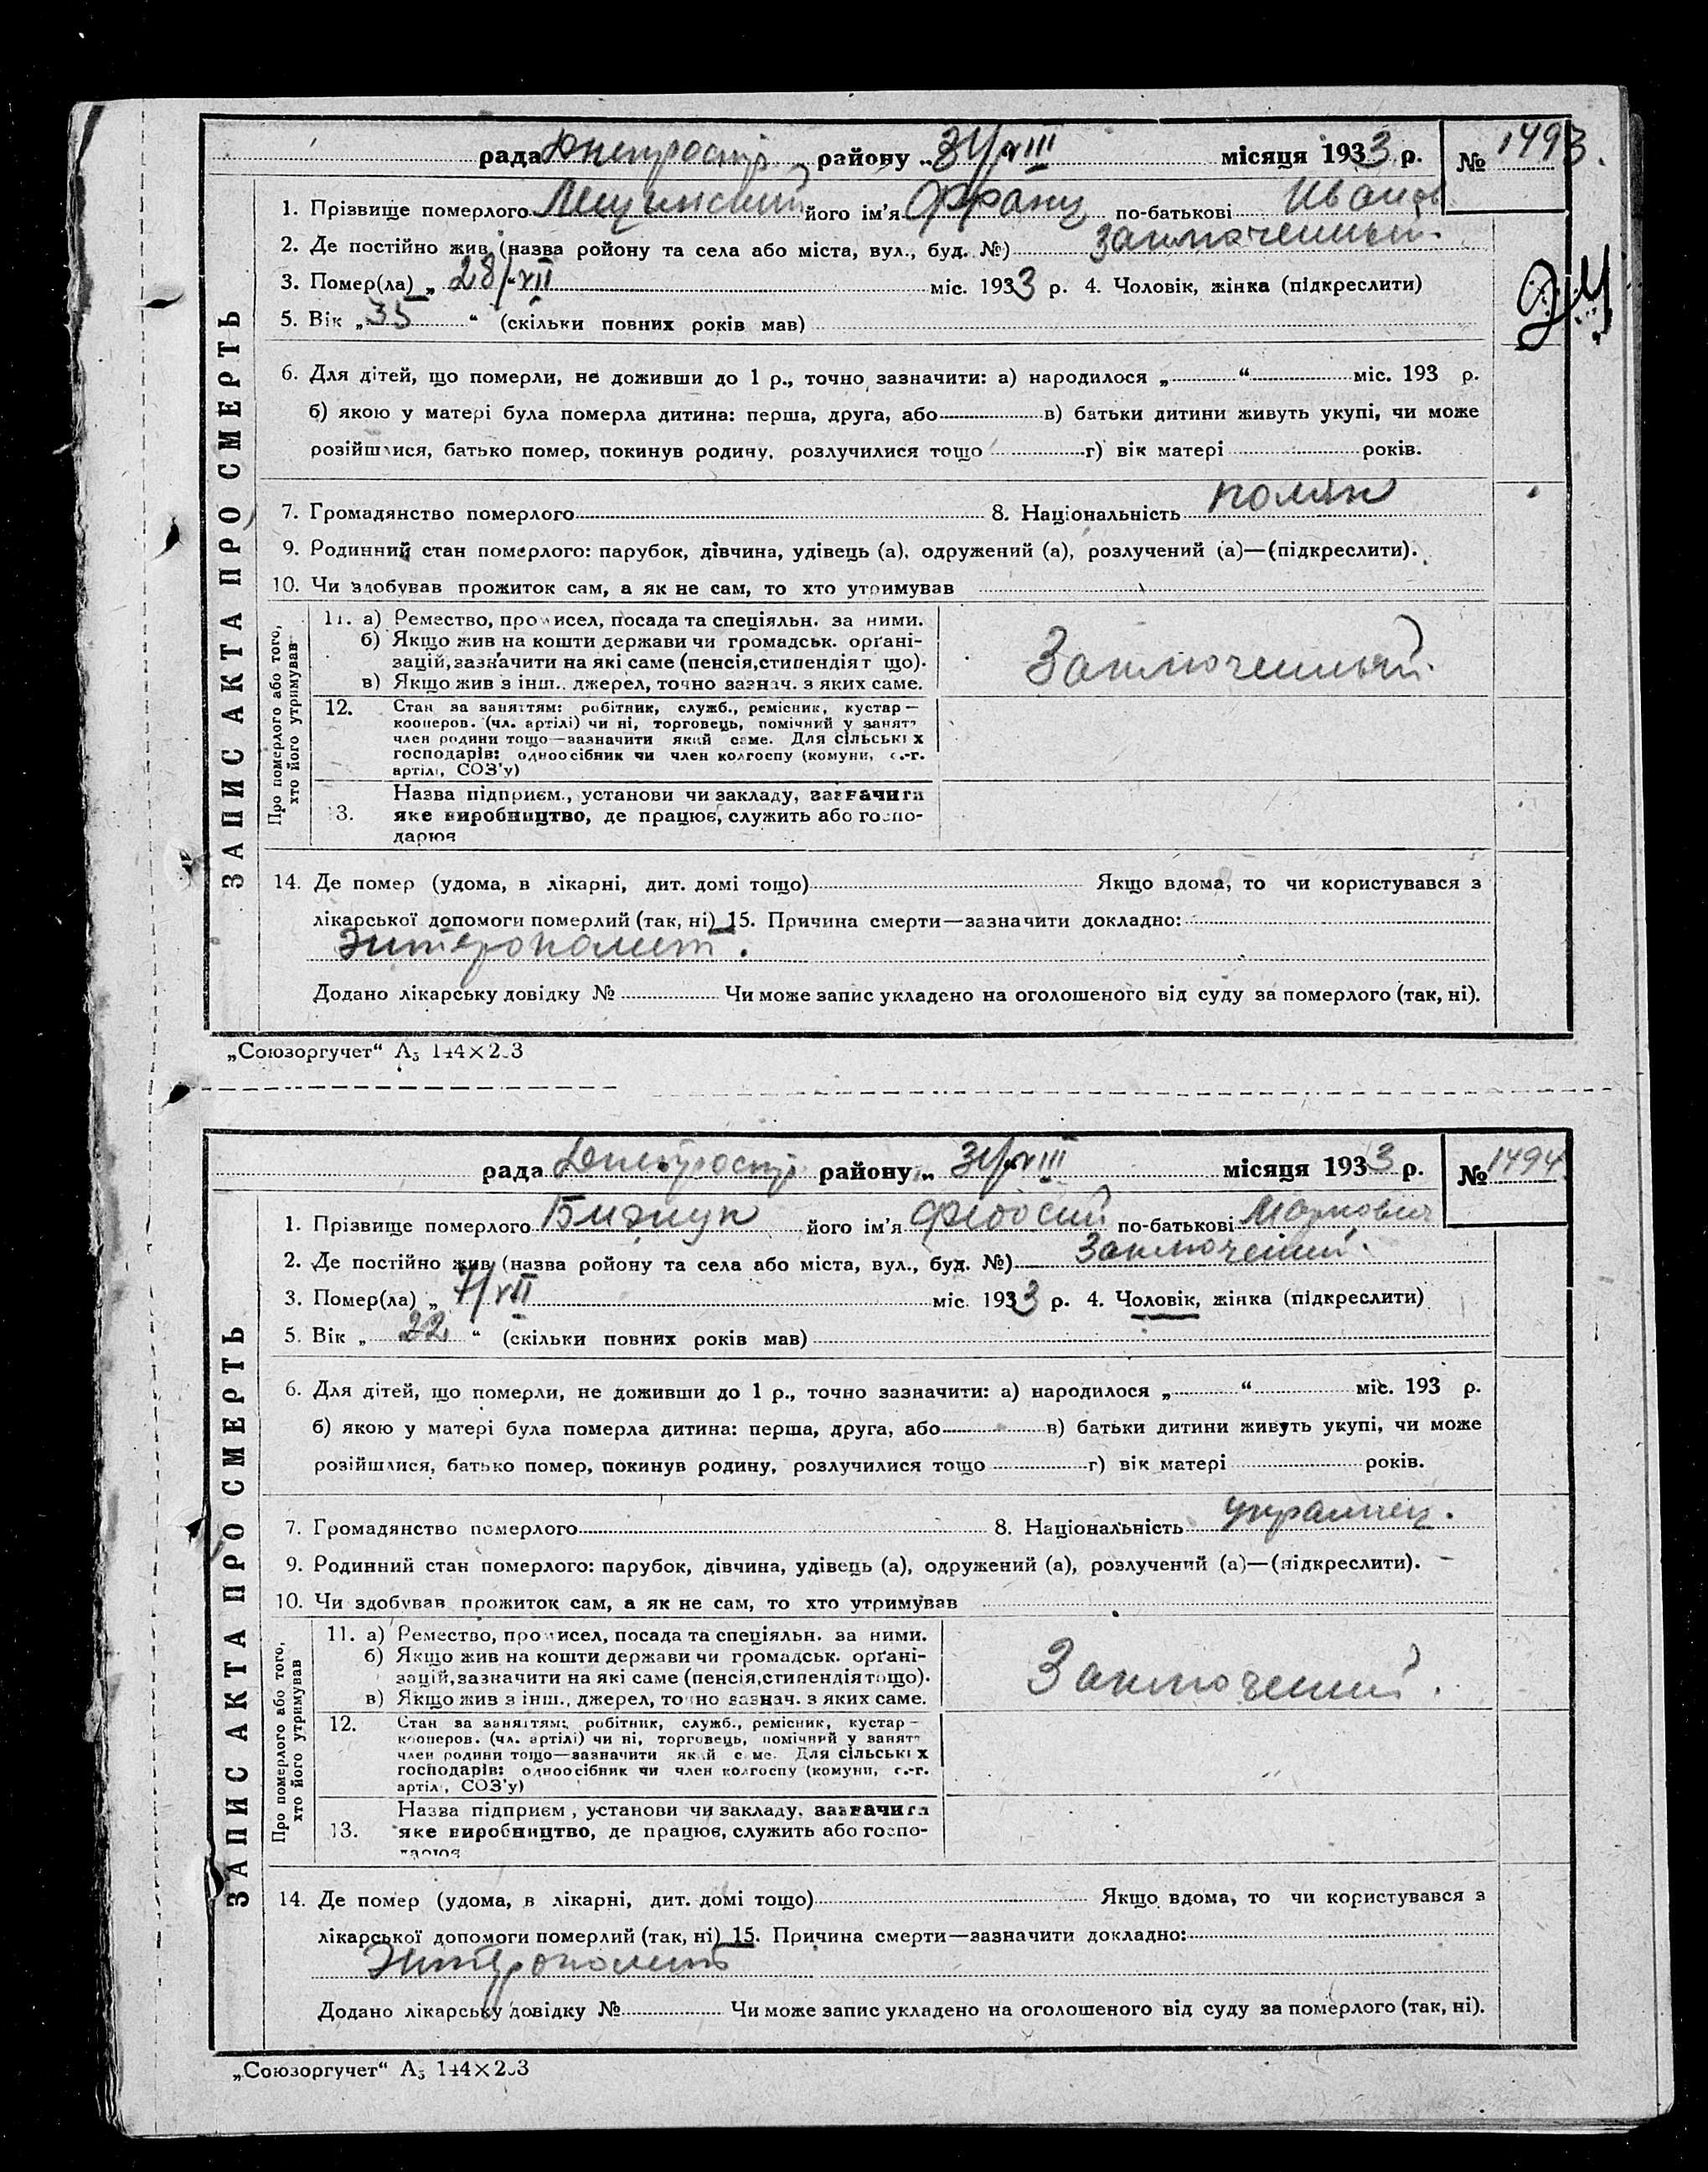 рада Днепрострр району „ 31/VIII місяця 1933 р. № 1493.
1. Прізвище померлого його ім’я Франц по-батькові Иванов
2. Де постійно жив (назва ройону та села або міста, вул., буд. №) Заключенный.
3. Помер(ла) „ 28/VII міс. 1933 р. 4. Чоловік, жінка (підкреслити)
5. Вік „ 35 “ (скільки повних років мав)
6. Для дітей, що померли, не доживши до 1 р., точно зазначити: а) народилося „ “ міс. 193 р.
б) якою у матері була померла дитина: перша, друга, або в) батьки дитини живуть укупі, чи може
розійшлися, батько помер, покинув родину, розлучилися тощо г) вік матері років.
7. Громадянство померлого 8. Національність поляк
9. Родинний стан померлого: парубок, дівчина, удівець (а), одружений (а), розлучений (а)—(підкреслити).
10. Чи здобував прожиток сам, а як не сам, то хто утримував
ЗАПИС АКТА ПРО СМЕРТЬ
Про померлого або того,
хто його утримував
11. а) Ремество, промисел, посада та спеціяльн. за ними.
б) Якщо жив на кошти держави чи громадськ. орґані-
зацій, зазначити на які саме (пенсія, стипендія т що).
в) Якщо жив з інш., джерел, точно зазнач. з яких саме.
Заключенный.
12. Стан за заняттям: робітник, служб., ремісник, кустар—
кооперов. (чл. артілі) чи ні, торговець, помічний у занятт
член родини тощо—зазначити який саме. Для сільських
господарів: одноосібник чи член колгоспу (комуни, с.-г.
артілі, СОЗ’у)
13. Назва підприєм., установи чи закладу, зазначити
яке виробництво, де працює, служить або госпо-
дарює
14. Де помер (удома, в лікарні, дит. домі тощо) Якщо вдома, то чи користувався з
лікарської допомоги померлий (так, ні) 15. Причина смерти—зазначити докладно:
Энтероколит.
Додано лікарську довідку № Чи може запис укладено на оголошеного від суду за померлого (так, ні).
„Союзоргучет“ А₅ 144×203
рада Днепрострр району „ 31/VIII місяця 1933 р. № 1494
1. Прізвище померлого його ім’я по-батькові Маркович
2. Де постійно жив (назва ройону та села або міста, вул., буд. №) Заключений.
3. Помер(ла) „ 7/VII міс. 1933 р. 4. Чоловік, жінка (підкреслити)
5. Вік „ 22 “ (скільки повних років мав)
6. Для дітей, що померли, не доживши до 1 р., точно зазначити: а) народилося „ “ міс. 193 р.
б) якою у матері була померла дитина: перша, друга, або в) батьки дитини живуть укупі, чи може
розійшлися, батько помер, покинув родину, розлучилися тощо г) вік матері років.
7. Громадянство померлого 8. Національність украинец.
9. Родинний стан померлого: парубок, дівчина, удівець (а), одружений (а), розлучений (а)—(підкреслити).
10. Чи здобував прожиток сам, а як не сам, то хто утримував
ЗАПИС АКТА ПРО СМЕРТЬ
Про померлого або того,
хто його утримував
11. а) Ремество, промисел, посада та спеціяльн. за ними.
б) Якщо жив на кошти держави чи громадськ. орґані-
зацій, зазначити на які саме (пенсія, стипендія тощо).
в) Якщо жив з інш., джерел, точно зазнач. з яких саме.
Заключений.
12. Стан за заняттям: робітник, служб., ремісник, кустар—
кооперов. (чл. артілі) чи ні, торговець, помічний у занятт
член родини тощо—зазначити який саме. Для сільських
господарів: одноосібник чи член колгоспу (комуни, с.-г.
артілі, СОЗ’у)
13. Назва підприєм., установи чи закладу, зазначити
яке виробництво, де працює, служить або госпо-
дарює
14. Де помер (удома, в лікарні, дит. домі тощо) Якщо вдома, то чи користувався з
лікарської допомоги померлий (так, ні) 15. Причина смерти—зазначити докладно:
Энтероколит
Додано лікарську довідку № Чи може запис укладено на оголошеного від суду за померлого (так, ні).
„Союзоргучет“ А₅ 144×203